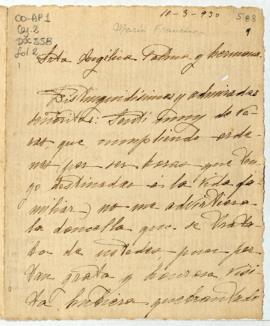 10-3-930
588
CO-AP1
Cj. 2
Doc 558
fol 2
María Francisca
1
Srta Angélica Palma y hermana
Distinguidísimas y admiradas
señoritas: Sentí muy de ve-
ras que cumpliendo orde-
nes (por ser horas que ten-
go destinadas a la vida fa-
miliar) no me advirtiera
la doncella que se trata-
ba de ustedes pues por
tan grata y honrosa visi-
ta hubiera quebrantado